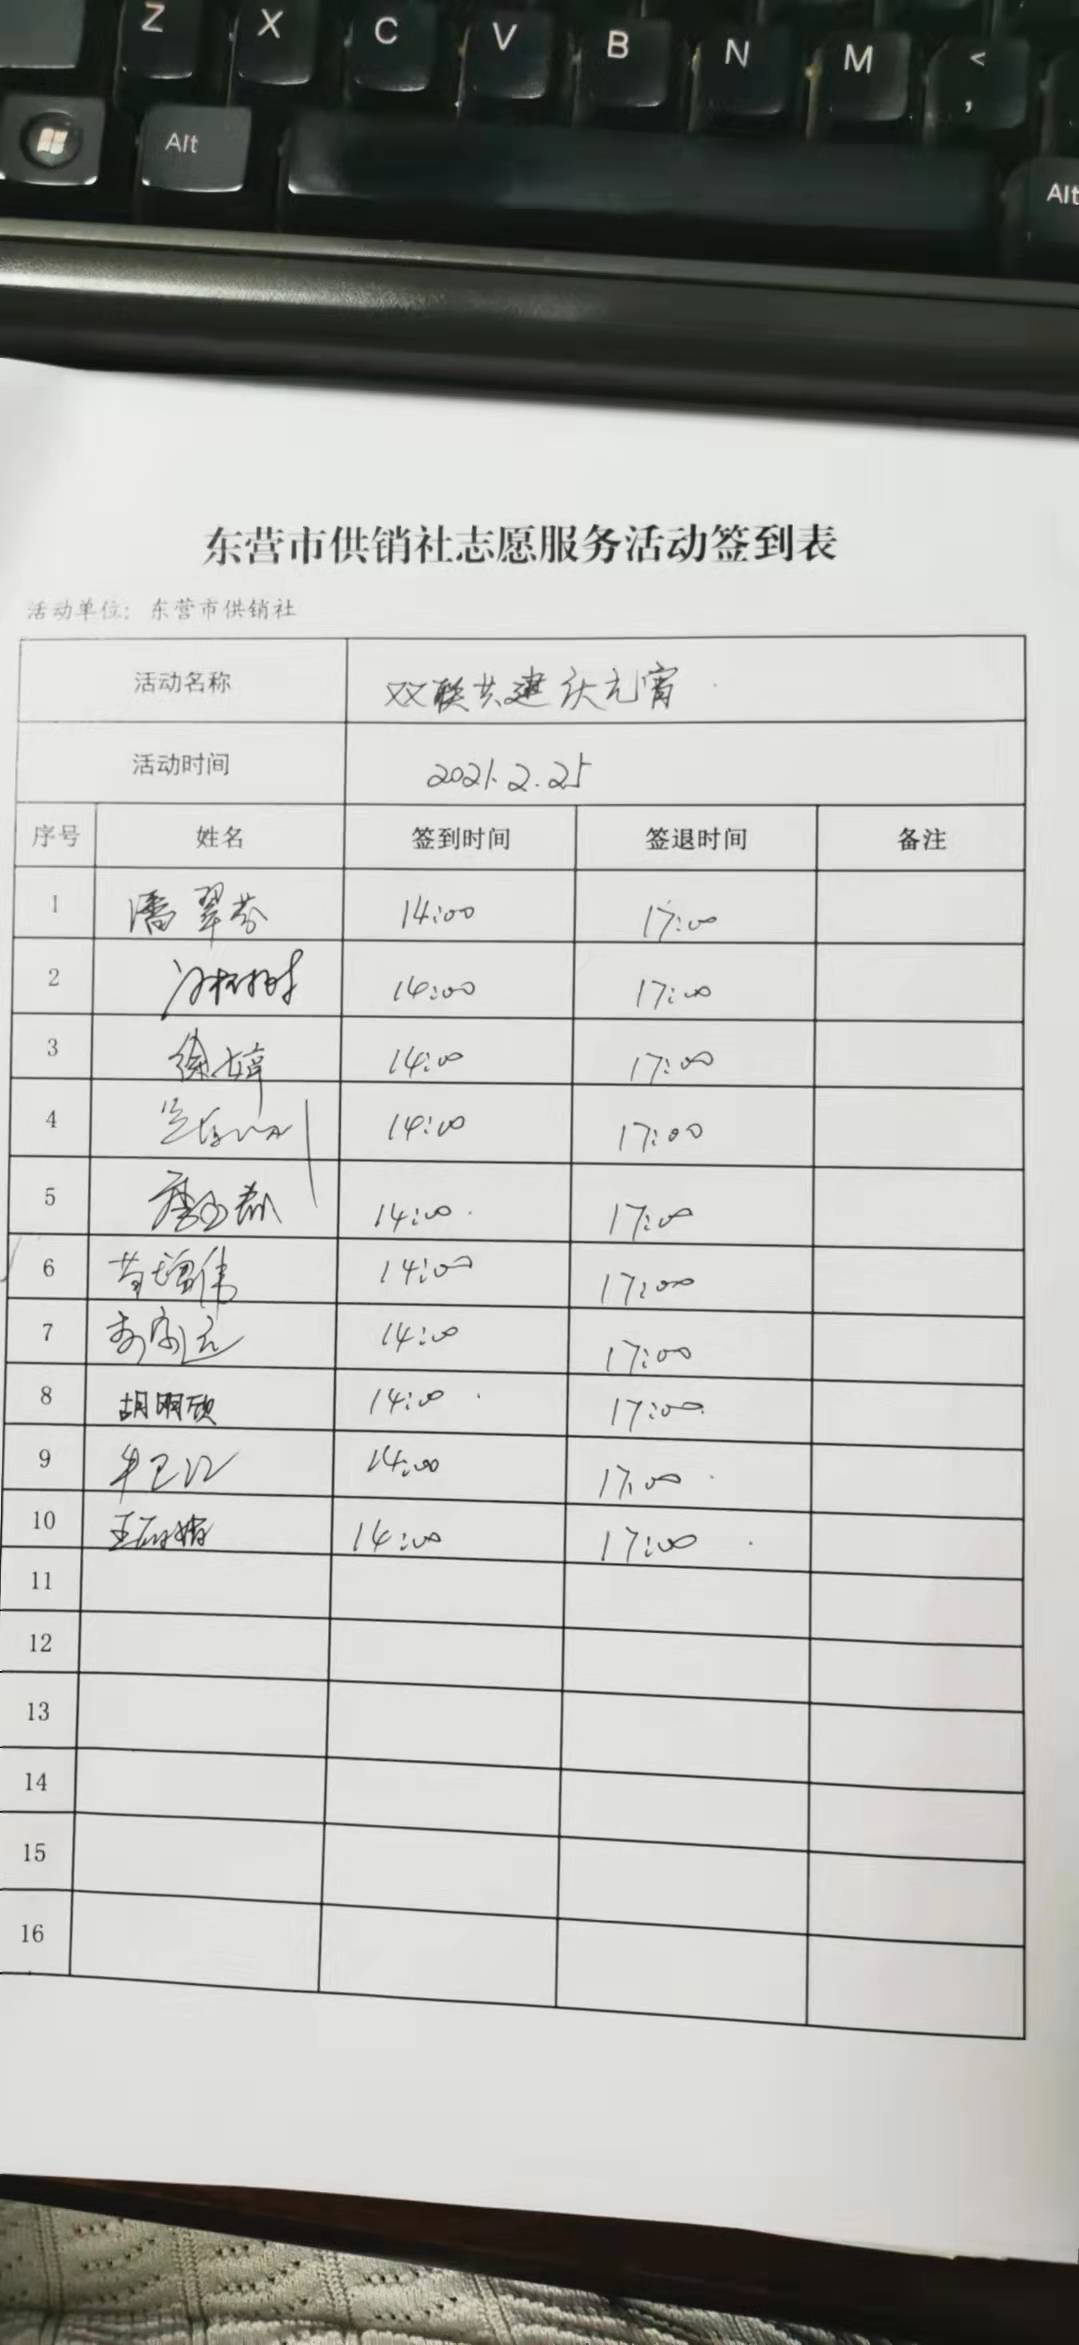 Z X C V B N M <
,
Alt Alt
东营市供销社志愿服务活动签到表
活动单位：东营市供销社
活动名称 双联共建庆元宵
活动时间 2021.2.25
序号 姓名 签到时间 签退时间 备注
1 潘翠芬 14:00 17:00
2 14:00 17:00
3 徐婷 14:00 17:00
4 14:00 17:00
5 14:00 17:00
6 苟增伟 14:00 17:00
7 14:00 17:00
8 胡明欣 14:00 17:00
9 牛卫江 14:00 17:00
10 14:00 17:00
11
12
13
14
15
16